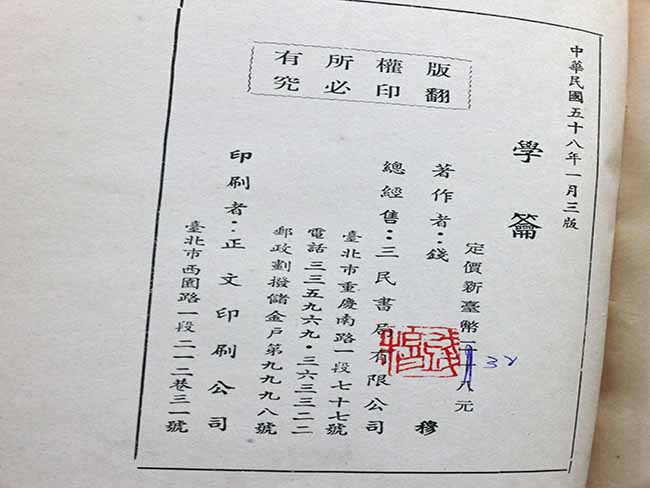 中華民國五十八年一月三版
學籥
定價新臺幣 八元
32
著作者：錢穆
總經售：三民書局有限公司
臺北市重慶南路一段七十七號
電話三三五九六九・三六三三二二
郵政劃撥儲金戶第九九九八號
印刷者：正文印刷公司
臺北市西園路一段二一二巷三一號
版權所有
翻印必究